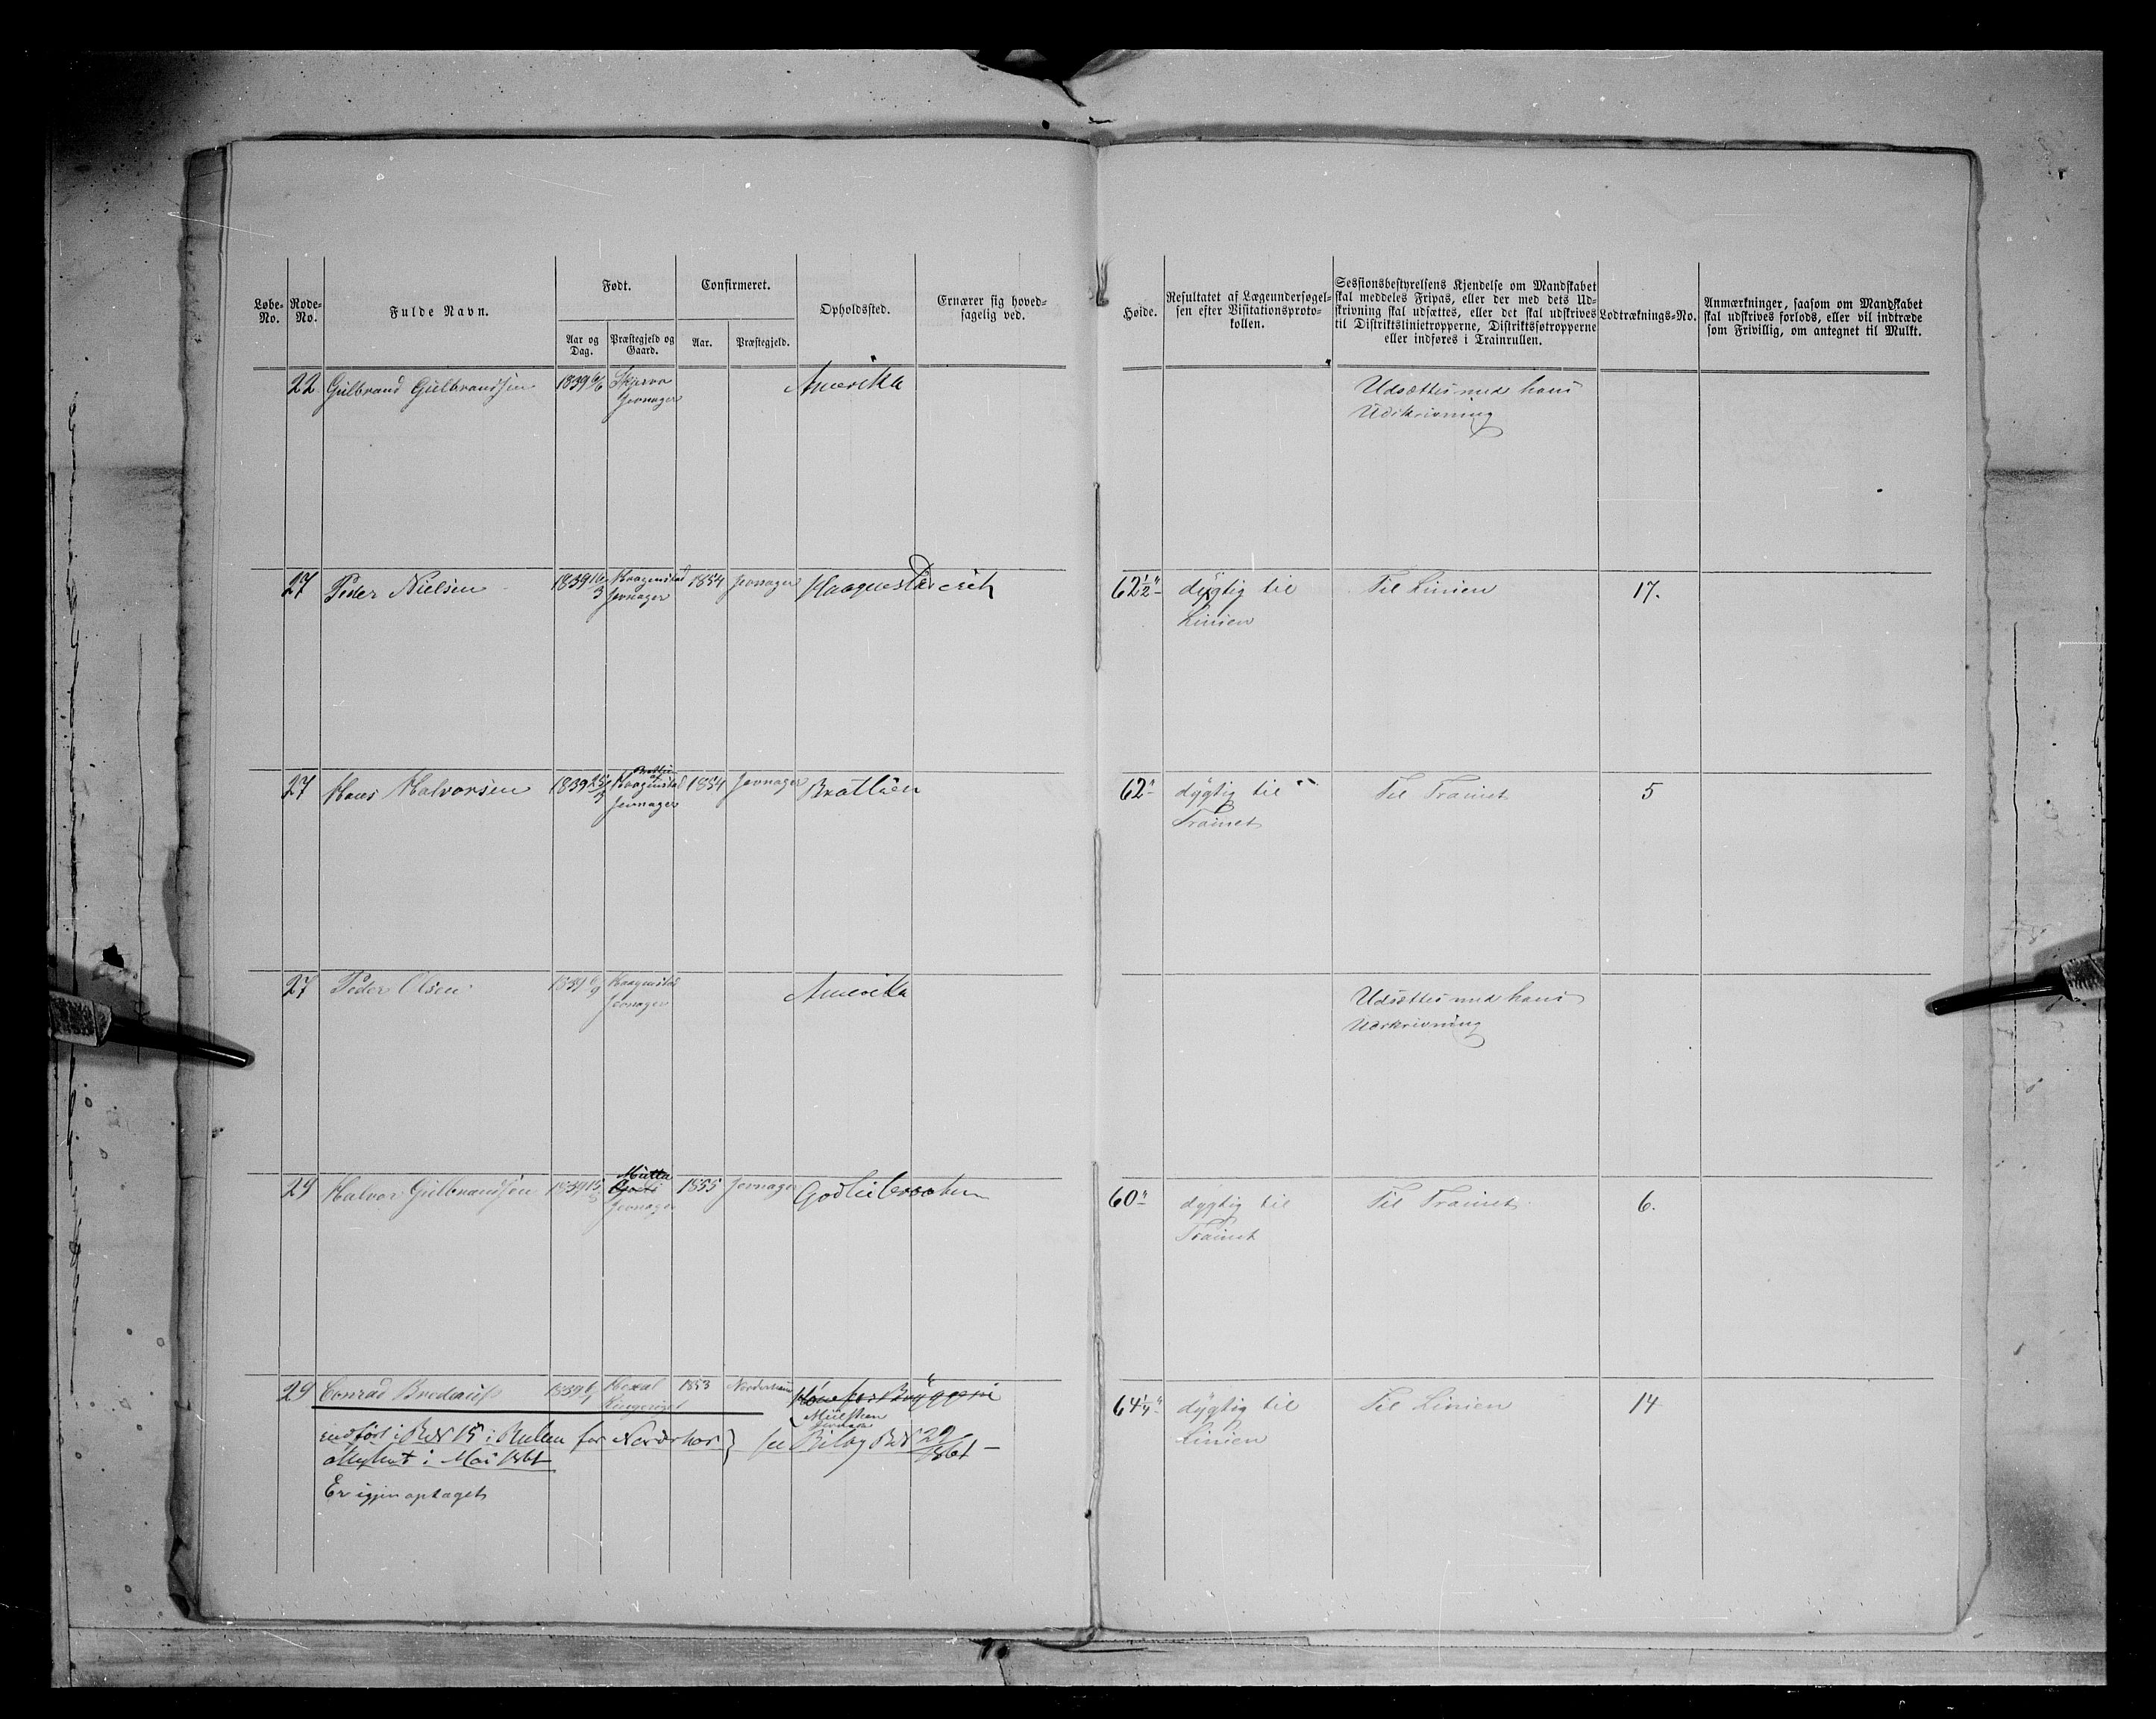 Løbe-No. Rode-No. Fulde Navn. Født. Aar og Dag. Præstegjeld og Gaard. Confirmeret. Aar. Præstegjeld. Opholdssted. Ernærer sig hovedsagelig ved.
Høide. Resultatet af Lægeundersøgelsen efter Visitationsprotokollen. Sessionsbestyrelsens Kjendelse om Mandskabet skal meddeles Fripas, eller der med dets Udskrivning skal udsættes, eller det skal udskrives til Distriktslinietropperne, Distriktsfotropperne eller indføres i Trainrullen. Lodtræknings-No. Anmærkninger, saasom om Mandskabet skal udskrives forlods, eller vil indtræde som Frivillig, om antegnet til Mulkt.
22 Gulbrand Gulbrandsen 1839 Jevnager Amerika Udsættes med hans
Udskrivning
27 Peder Nielsen 1839 16/3 Haagenstad 1854 Jevnager 62½" dygtig til Til Linien 17.
Jevnager Linien
27 Hans Halvorsen 1839 Haagenstad 1854 Jevnager Bratlien 62" dygtig til Til Trainet 5
Jevnager Trainet
27 Peder Olsen 1839 Haagenstad Amerika Udsættes med hans
Jevnager Udskrivning
29 Halvor Gulbrandsen 1839 1855 Jevnager 60" dygtig til Til Trainet 6.
Jevnager Trainet
29 Conrad 1839 1853 64¼" dygtig til Til Linien 14
Ringeriget Linien
indført i Rode 15 i Rullen for Norderhov } see Bilag 29
i Mai 1861 1861
Er igjen optaget